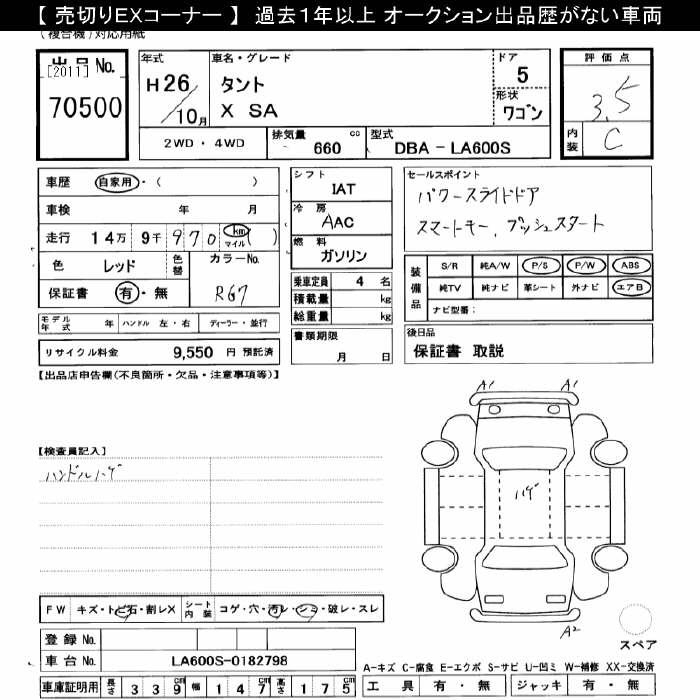 【 売切りEXコーナー 】 過去1年以上 オークション出品歴がない車両
(複合機)対応用紙
出品 No.
[2011]
70500
年式
H26/10月
車名・グレード
タント
X SA
ドア
5
形状
ワゴン
評価点
3.5
内装
C
2WD・4WD
排気量
660
cc
型式
DBA - LA600S
車歴 自家用・( )
車検 年 月
走行 14万 9千 970 km マイル ( )
色 レッド
色替
カラーNo.
R67
保証書 有・無
シフト
IAT
冷房
AAC
燃料
ガソリン
乗車定員 4 名
積載量 kg
総重量 kg
セールスポイント
パワースライドドア
スマートキー、プッシュスタート
装備品
S/R 純A/W P/S P/W ABS
純TV 純ナビ 革シート 外ナビ エアB
ナビ型番:
モデル年式 年 ハンドル 左・右 ディーラー・並行
リサイクル料金 9,550 円 預託済
書類期限
月 日
後日品
保証書 取説
【出品店申告欄(不良箇所・欠品・注意事項等)】
A1 A1
【検査員記入】
ハンドルハゲ
ハゲ
FW キズ・トビ石・割レX シート内装 コゲ・穴・汚レ・シミ・破レ・スレ
A2
スペア
登録 No.
車台 No. LA600S-0182798
A-キズ C-腐食 E-エクボ S-サビ U-凹ミ W-補修 XX-交換済
車庫証明用 長さ 339 cm 幅 147 cm 高さ 175 cm
工具 有・無 ジャッキ 有・無